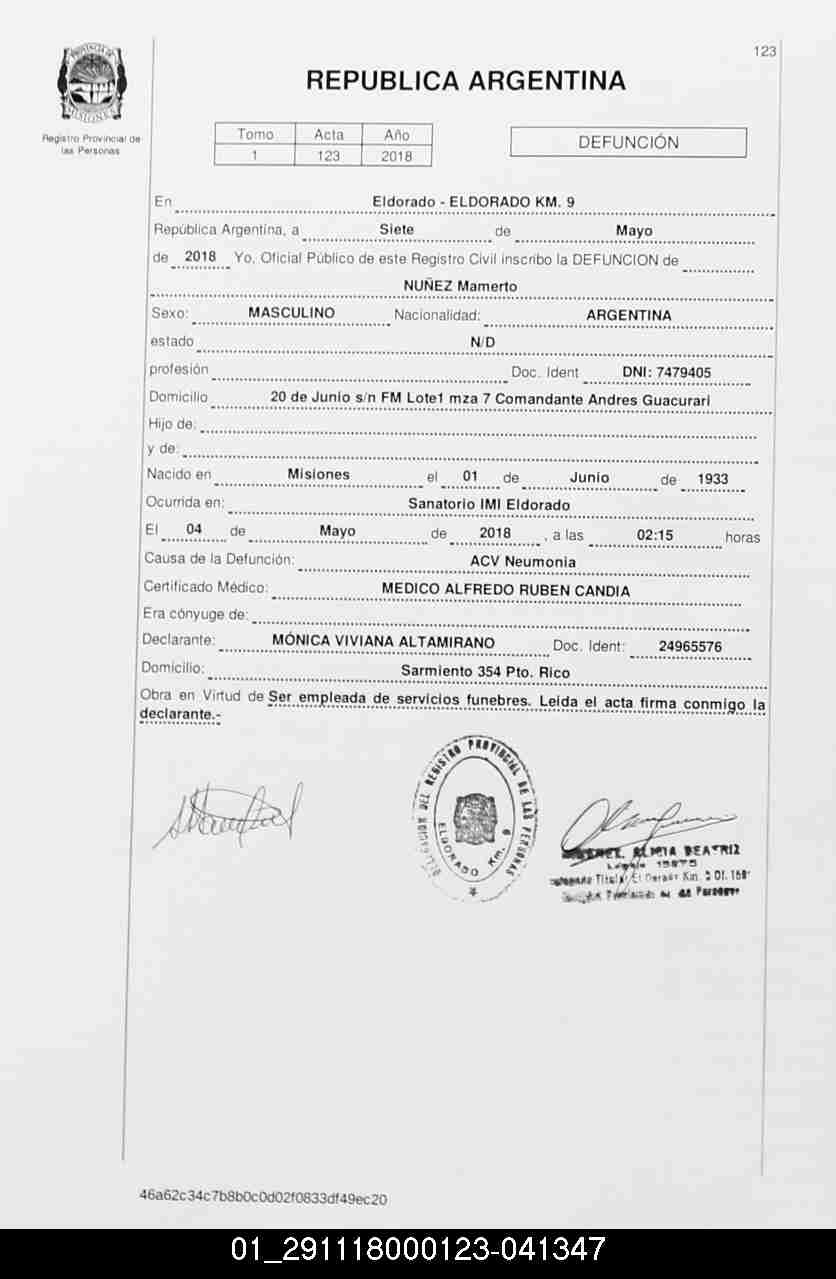 123
PROVINCIA DE MISIONES
Registro Provincial de
las Personas
REPUBLICA ARGENTINA
Tomo Acta Año
1 123 2018
DEFUNCIÓN
En Eldorado - ELDORADO KM. 9
República Argentina, a Siete de Mayo
de 2018 Yo, Oficial Público de este Registro Civil inscribo la DEFUNCION de
NUÑEZ Mamerto
Sexo: MASCULINO Nacionalidad: ARGENTINA
estado N/D
profesión Doc. Ident DNI: 7479405
Domicilio 20 de Junio s/n FM Lote1 mza 7 Comandante Andres Guacurari
Hijo de:
y de:
Nacido en Misiones el 01 de Junio de 1933
Ocurrida en: Sanatorio IMI Eldorado
El 04 de Mayo de 2018 , a las 02:15 horas
Causa de la Defunción: ACV Neumonia
Certificado Médico: MEDICO ALFREDO RUBEN CANDIA
Era cónyuge de:
Declarante: MÓNICA VIVIANA ALTAMIRANO Doc. Ident: 24965576
Domicilio: Sarmiento 354 Pto. Rico
Obra en Virtud de Ser empleada de servicios funebres. Leida el acta firma conmigo la
declarante.-
DELEGACION DEL REGISTRO PROVINCIAL DE LAS PERSONAS
ELDORADO Km. 9
ALICIA BEATRIZ
Titular
46a62c34c7b8b0c0d02f0833df49ec20
01_291118000123-041347